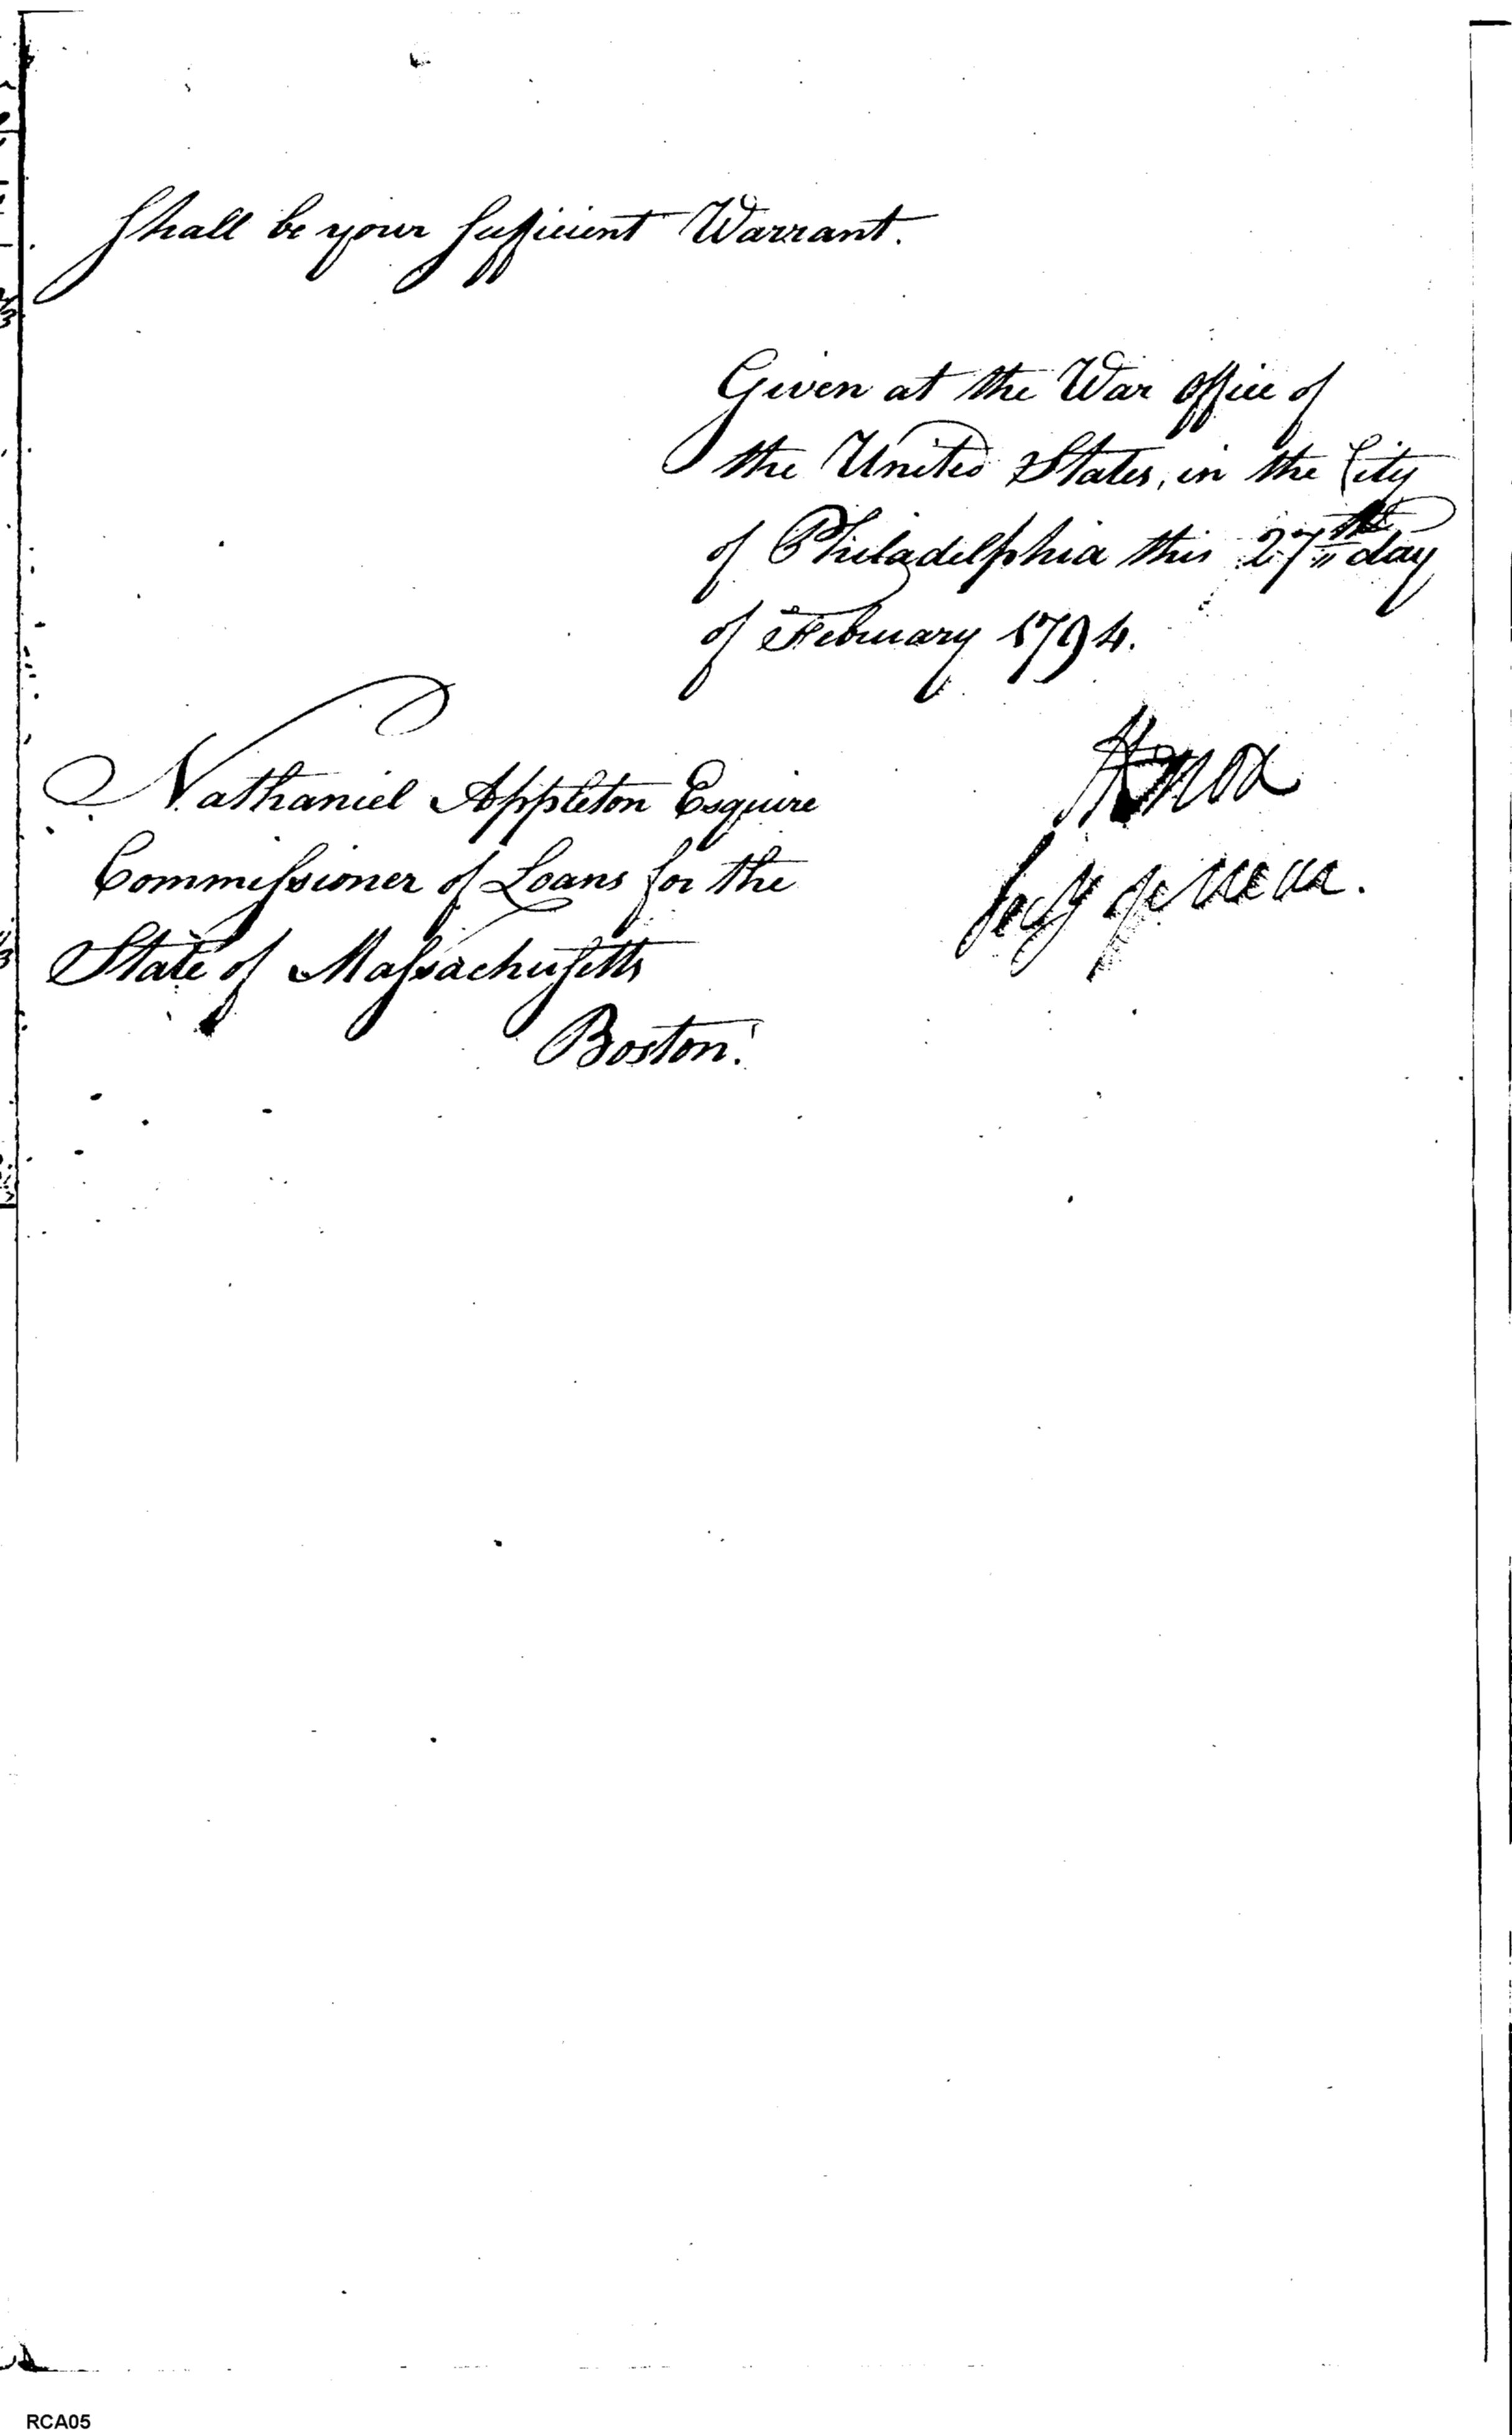 Shall be your sufficient Warrant.
Given at the War Office of
the United States, in the City
of Philadelphia this 27th day
of February 1794.
HKnox
Secy of War.
Nathaniel Appleton Esquire
Commissioner of Loans for the
State of Massachusetts
Boston.
RCA05